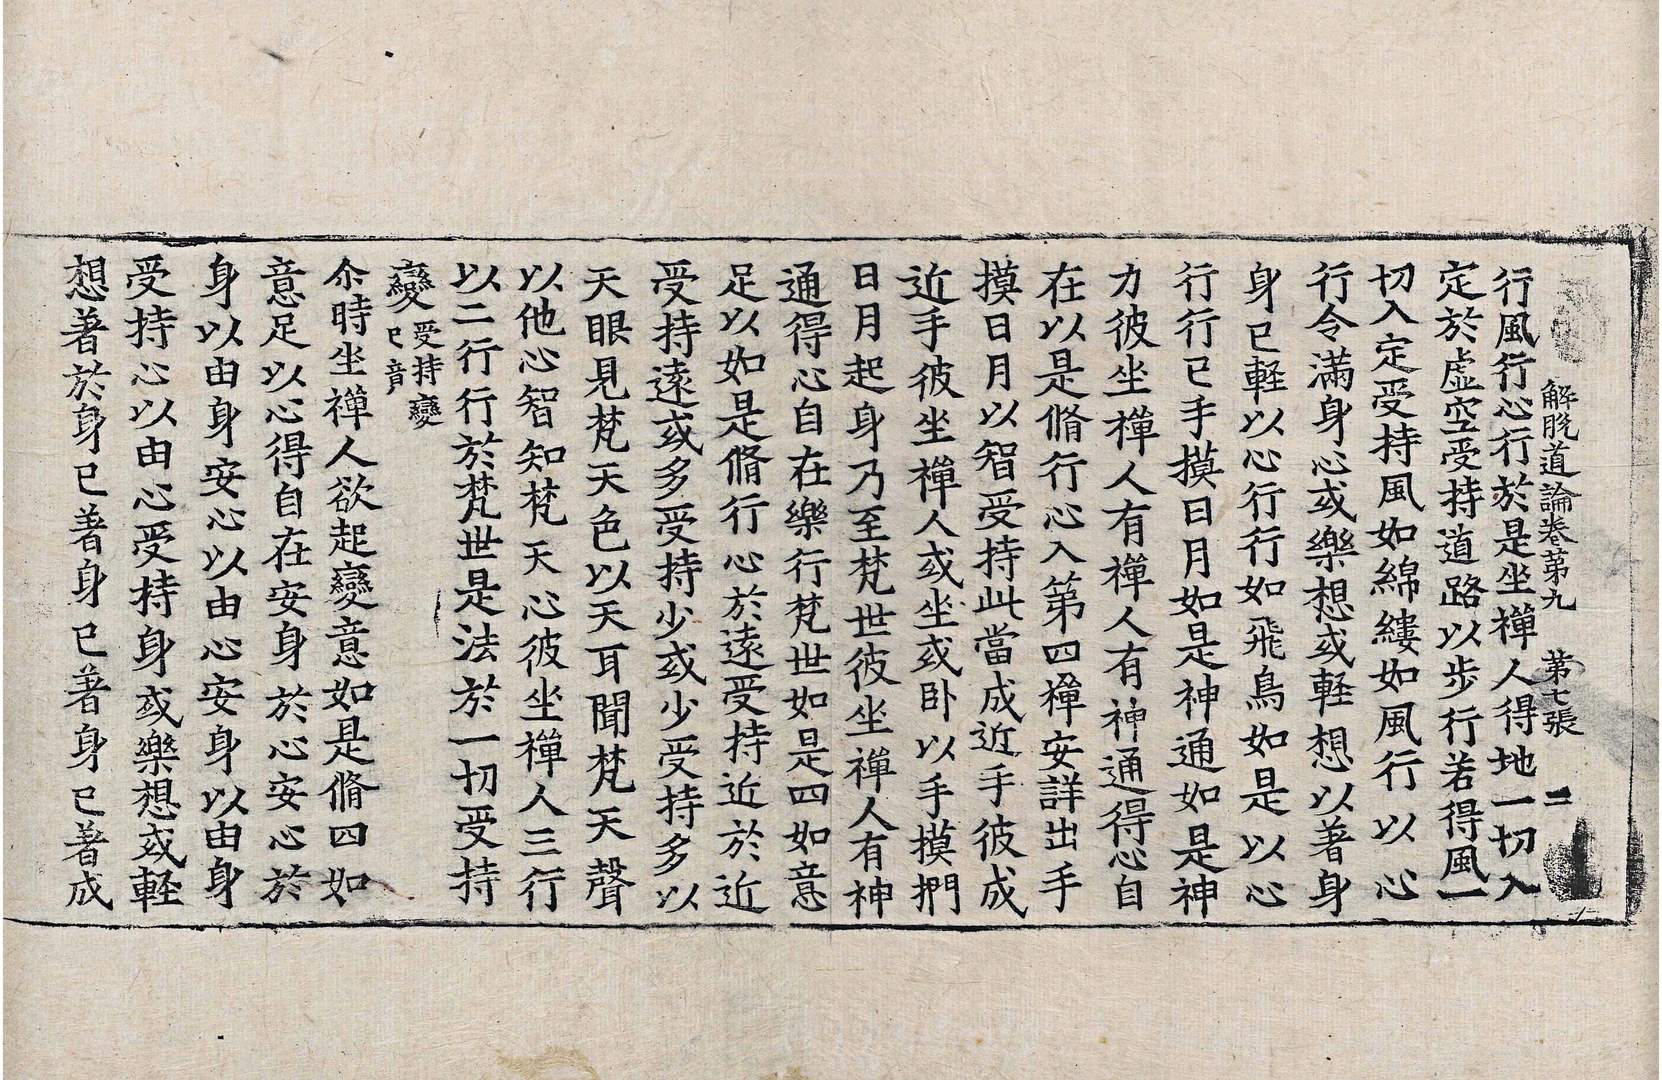 解脫道論卷第九　第七張　二
行風行心行於是坐禪人得地一切入
定於虛空受持道路以步行若得風一
切入定受持風如綿縷如風行以心
行令滿身心或樂想或輕想以著身
身已輕以心行行如飛鳥如是以心
行行已手摸日月如是神通如是神
力彼坐禪人有禪人有神通得心自
在以是脩行心入第四禪安詳出手
摸日月以智受持此當成近手彼成
近手彼坐禪人或坐或臥以手摸捫
日月起身乃至梵世彼坐禪人有神
通得心自在樂行梵世如是四如意
足以如是脩行心於遠受持近於近
受持遠或多受持少或少受持多以
天眼見梵天色以天耳聞梵天聲
以他心智知梵天心彼坐禪人三行
以二行行於梵世是法於一切受持
變受持變已竟
尒時坐禪人欲起變意如是脩四如
意足以心得自在安身於心安心於
身以由身安心以由心安身以由身
受持心以由心受持身或樂想或輕
想著於身已著身已著身已著成